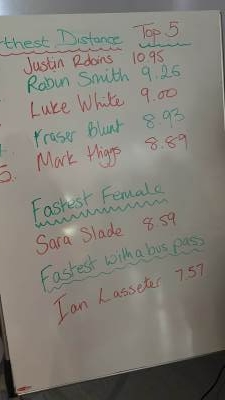 thest Distance Top 5
Justin Robins 10.95
Robin Smith 9.26
Luke White 9.00
Fraser Blunt 8.93
5. Mark Higgs 8.89
Fastest Female
Sara Slade 8.59
Fastest with a bus pass
Ian Lasseter 7.57